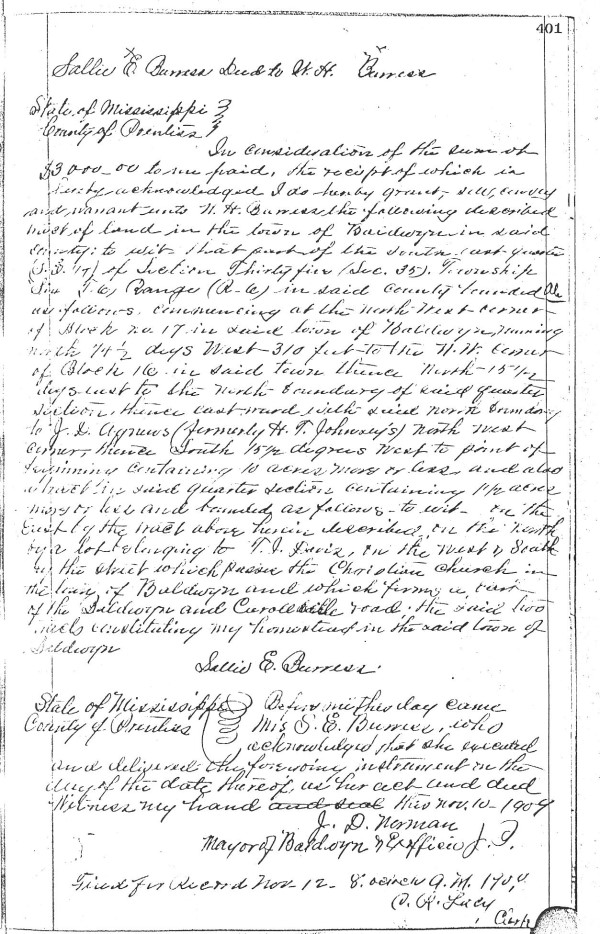 401
Sallie E. Burress Deed to W. H. Burress
State of Mississippi
County of Prentiss
In consideration of the sum of
$3000.00 to me paid, the receipt of which is
hereby acknowledged I do hereby grant, sell, convey
and warrant unto W. H. Burress the following described
tract of land in the town of Baldwyn in said
county: to wit- that part of the South east quarter
(S.E. 1/4) of Section Thirtyfive (Sec. 35), Township
Six T6, Range (R-6) in said County bounded
as follows, commencing at the North West corner
of Block no. 17 in said town of Baldwyn, running
north 74 1/2 degs West 310 feet to the N.W. Corner
of Block 16 in said town thence North 15 1/2
degs east to the North boundary of said quarter
section, thence east ward with said north boundary
to J. D. Agnews (formerly H. T. Johnsey's) North West
corner, thence South 15 1/2 degrees West to point of
beginning containing 10 acres more or less, and also
a tract in said quarter section containing 1 1/2 acres
more or less and bounded as follows- to wit- on the
East by the tract above herein described, on the North
by a lot belonging to T. J. Davis, on the West & South
by the street which passes the Christian church in
the town of Baldwyn and which forms a part
of the Baldwyn and Carrollville road. the said two
constituting my homestead in the said town of
Baldwyn
Sallie E. Burress.
State of Mississippi Before me this day came
County of Prentiss Mrs S. E. Burress, who
acknowledged that she executed
and delivered the foregoing instrument on the
day of the date thereof, as her act and deed
Witness my hand and seal this Nov. 10- 1904
J. D. Norman
Mayor of Baldwyn & Exofficio J. P.
Filed for Record Nov- 12- 8. oclock A.M.
Lacy
Clerk